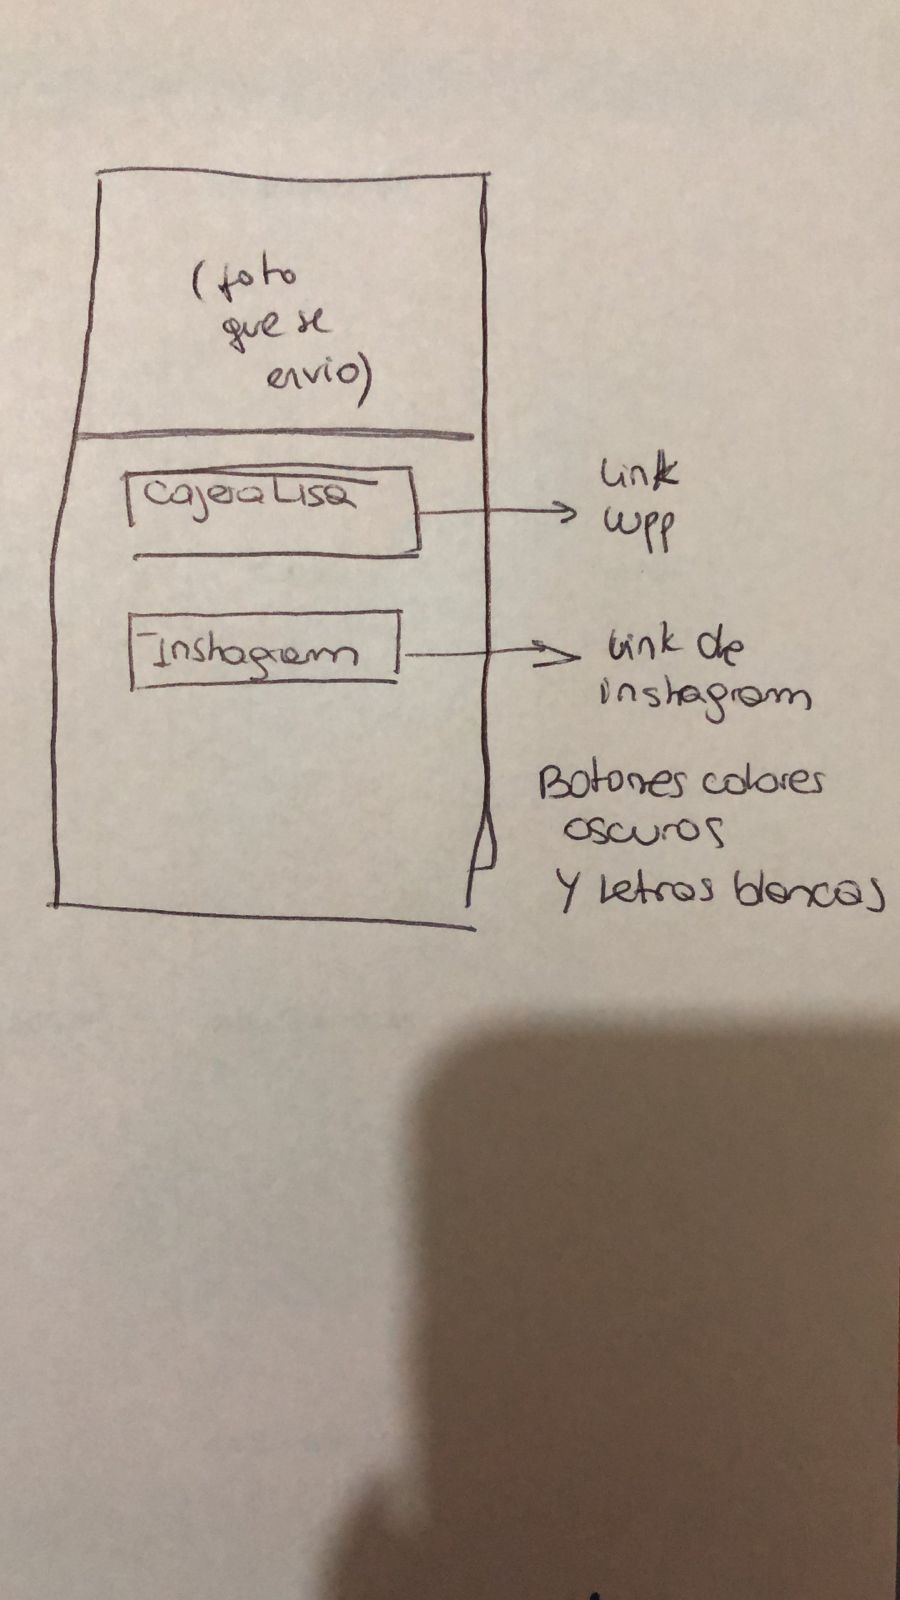 (foto
que se
envio)
Cajera Lisa
Link
wpp
Instagram
Link de
instagram
Botones colores
oscuros
Y Letras blancas